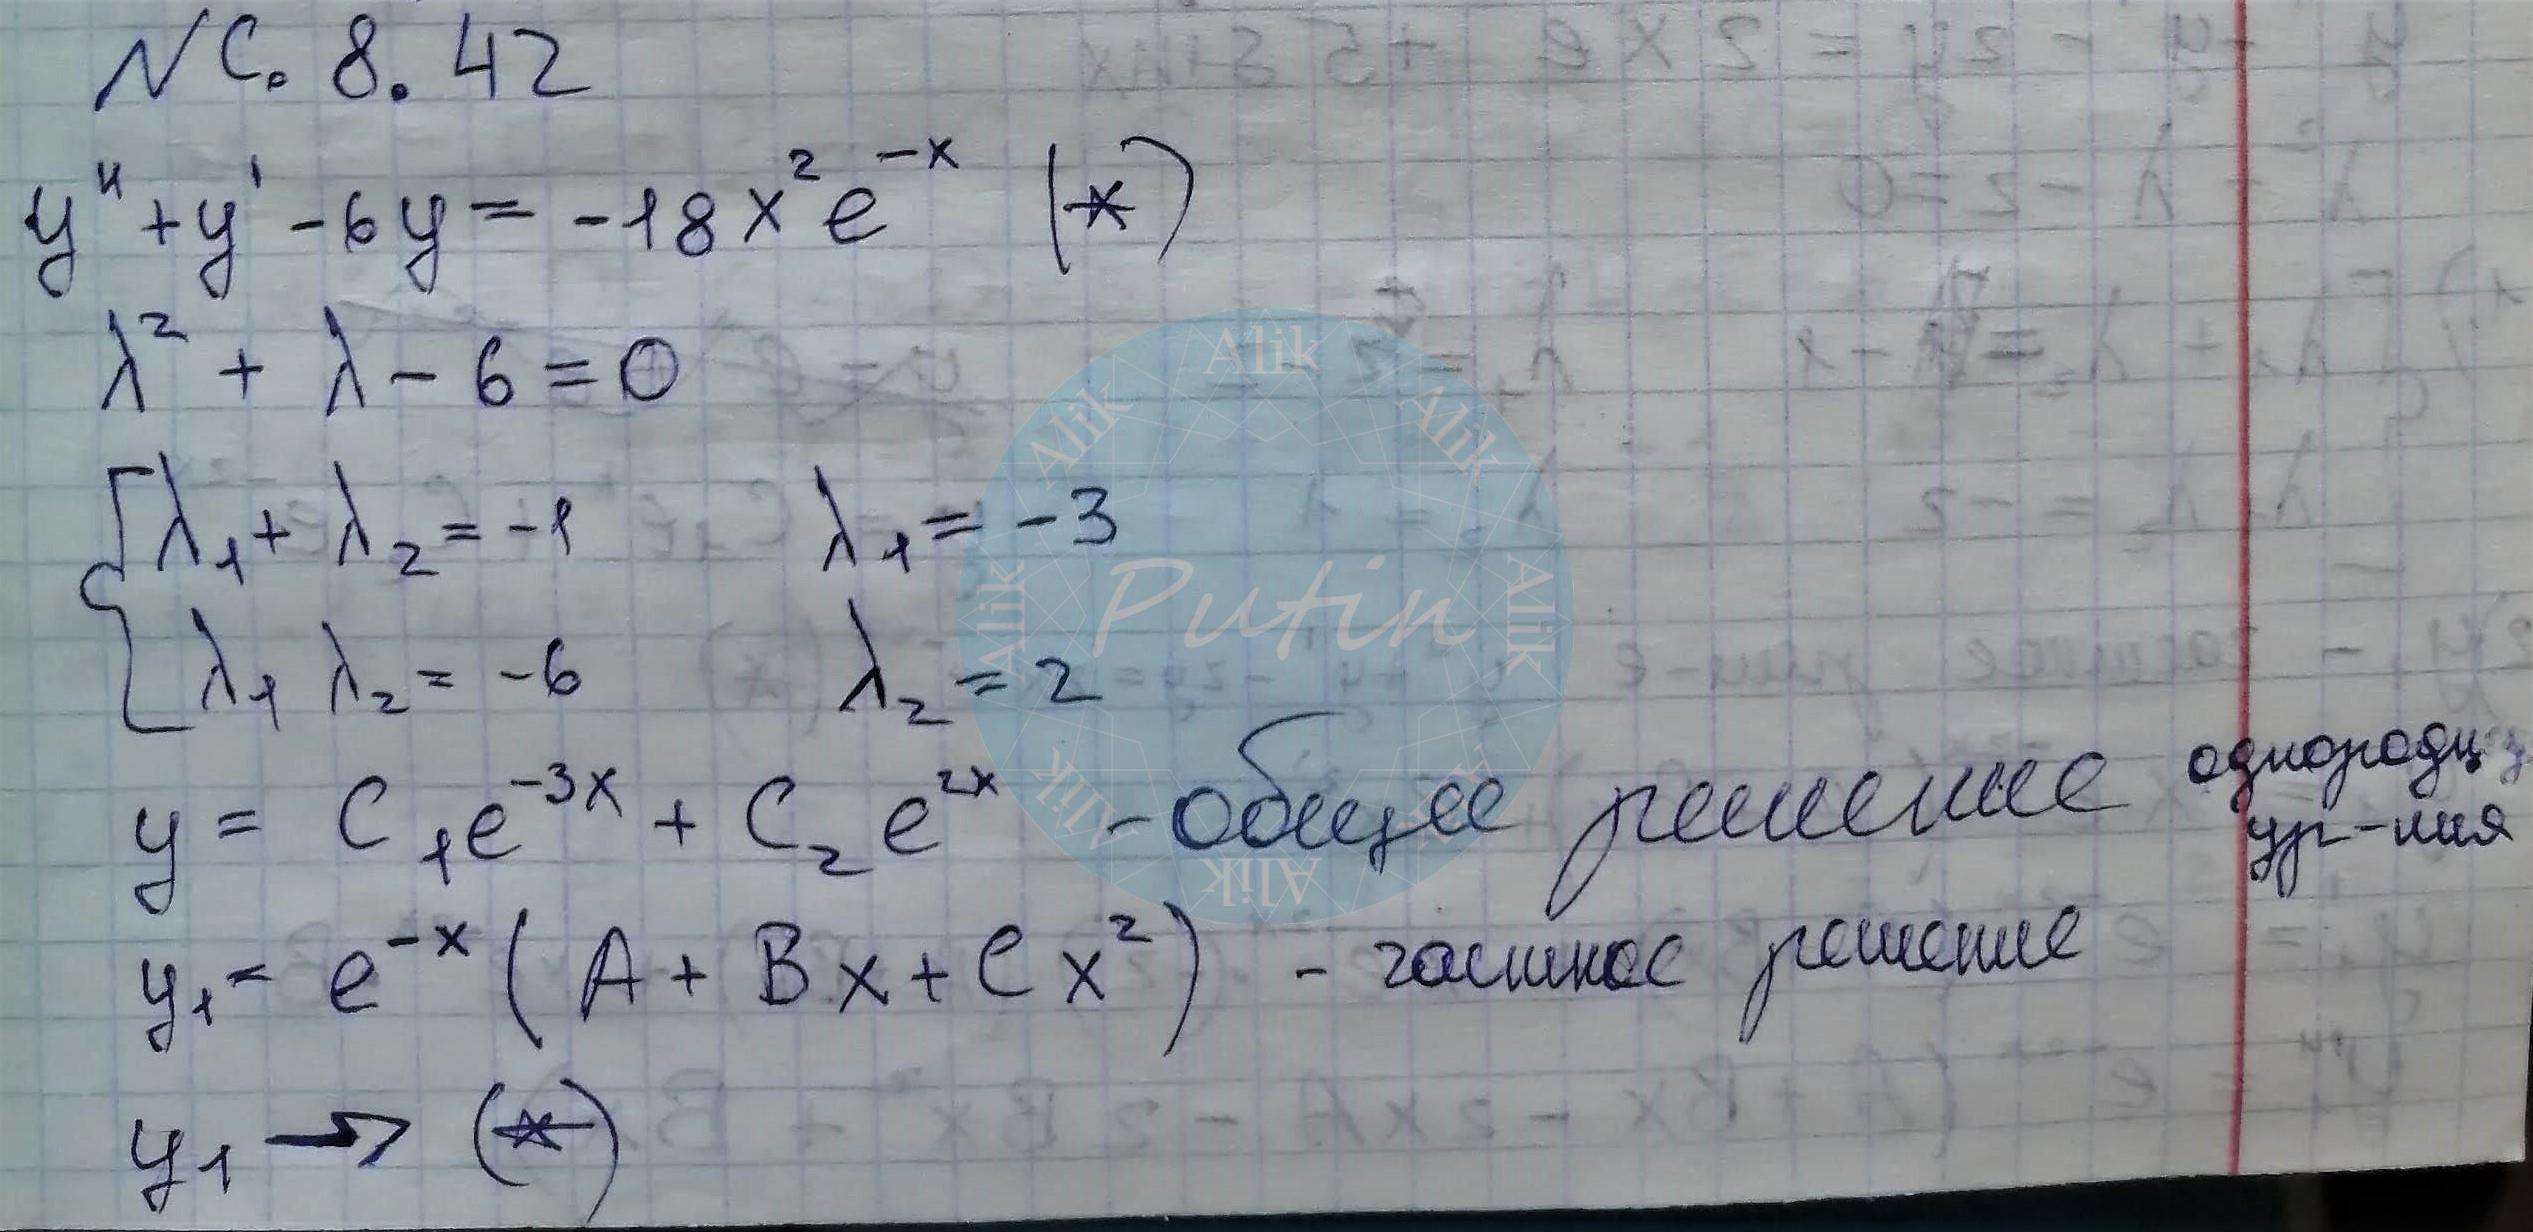 N C. 8. 42
y'' + y' - 6y = -18x²e^{-x} (*)
λ² + λ - 6 = 0
λ₁ + λ₂ = -1 λ₁ = -3
λ₁ λ₂ = -6 λ₂ = 2
y = C₁e^{-3x} + C₂e^{2x} - общее решение однородн ур-ния
y₁ = e^{-x} (A + Bx + Cx²) - частное решение
y₁ → (*)
Alik Alik Alik Alik Alik Alik Alik Alik
Putin